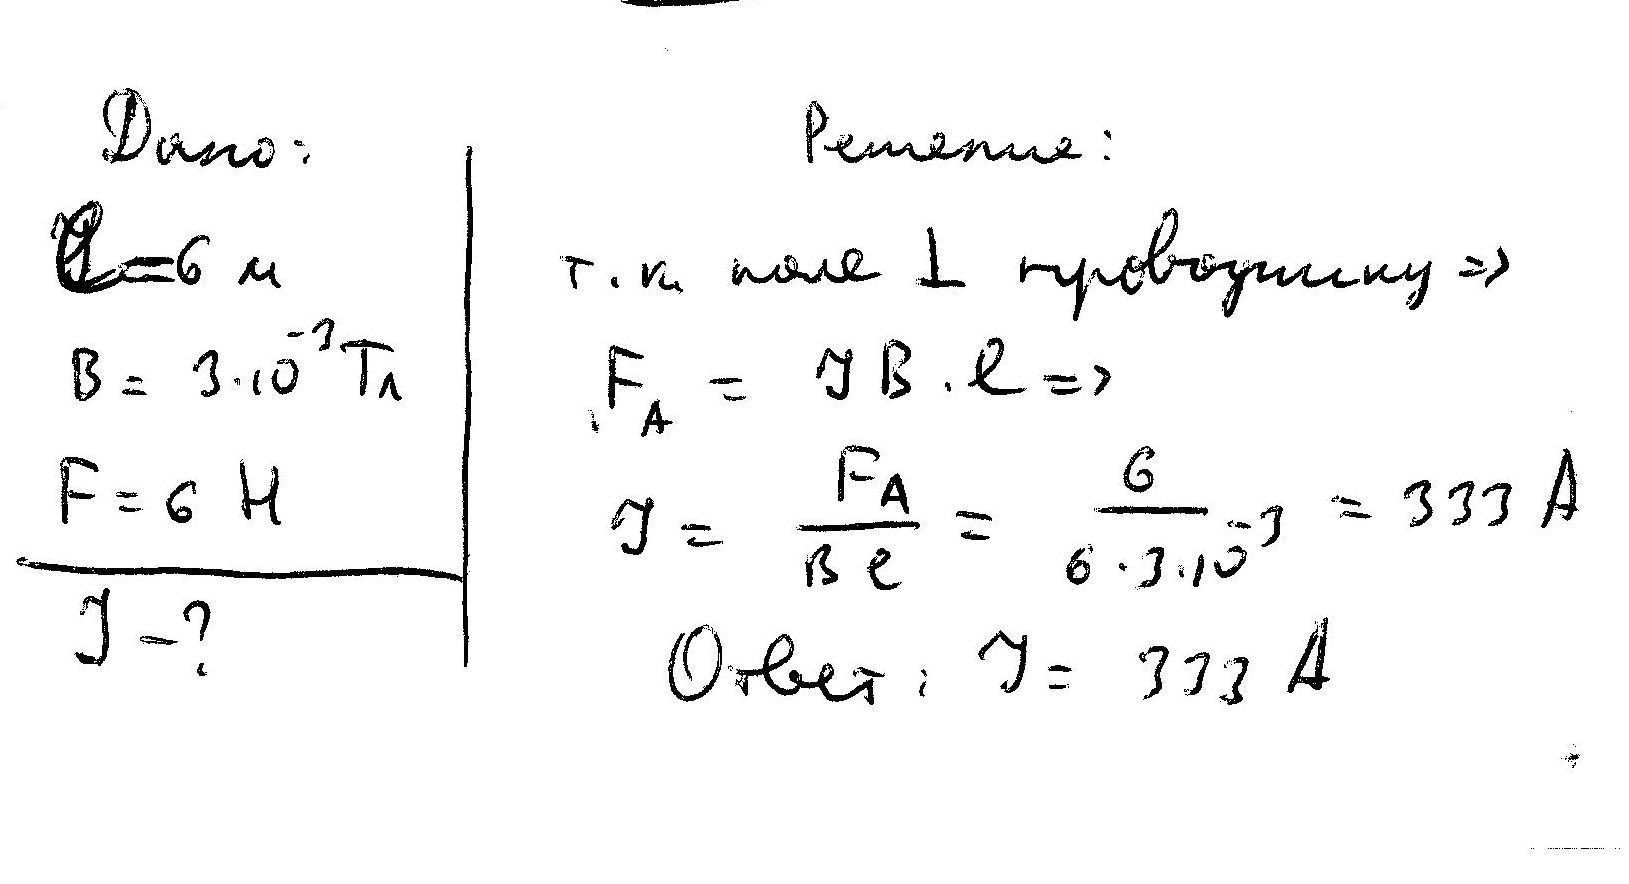 Дано:
l=6 м
B = 3·10⁻³ Тл
F = 6 Н
J - ?
Решение:
т.к. поле ⊥ проводнику =>
F_A = JB·l =>
J = F_A / Bl = 6 / 6·3·10⁻³ = 333 А
Ответ: J = 333 А